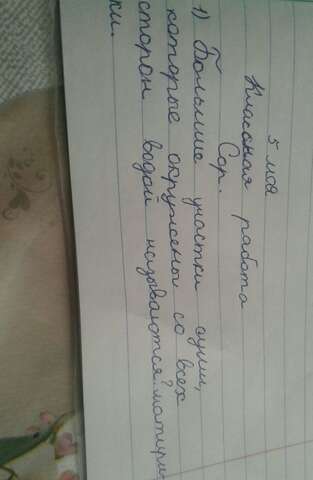 5 мая
Классная работа
Сор.
1) Большие участки суши,
которые окружены со всех
сторон водой называются? матири-
ки.